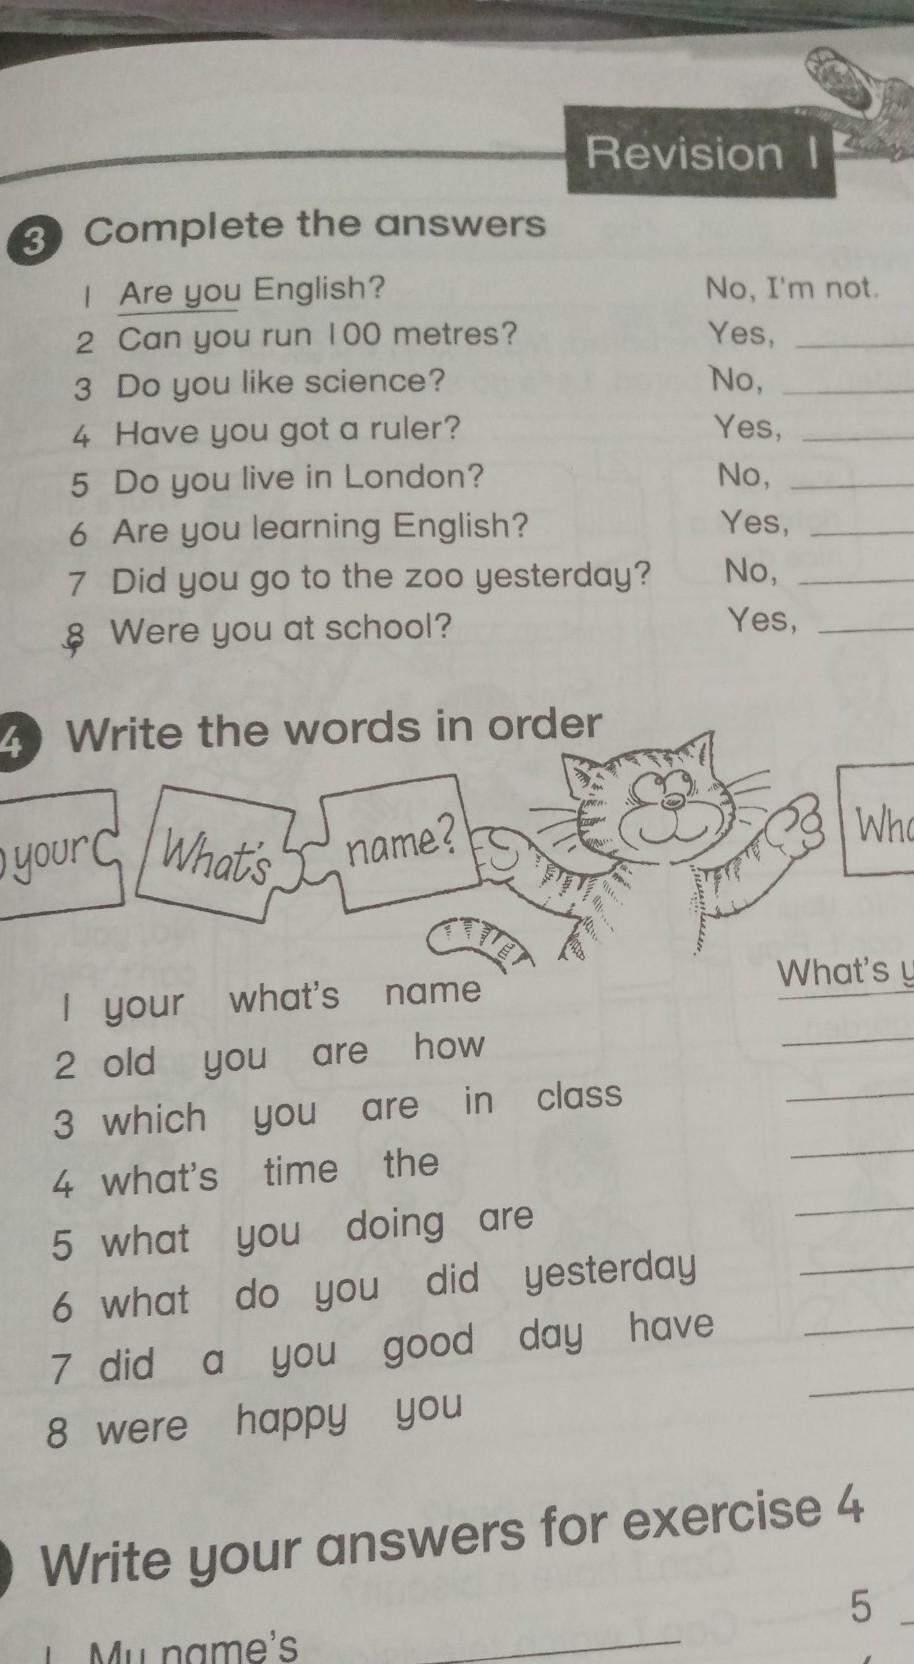 Revision 1
3 Complete the answers
1 Are you English? No, I'm not.
2 Can you run 100 metres? Yes,
3 Do you like science? No,
4 Have you got a ruler? Yes,
5 Do you live in London? No,
6 Are you learning English? Yes,
7 Did you go to the zoo yesterday? No,
8 Were you at school? Yes,
4 Write the words in order
your What's name?
1 your what's name What's
2 old you are how
3 which you are in class
4 what's time the
5 what you doing are
6 what do you did yesterday
7 did a you good day have
8 were happy you
Write your answers for exercise 4
1 My name's 5